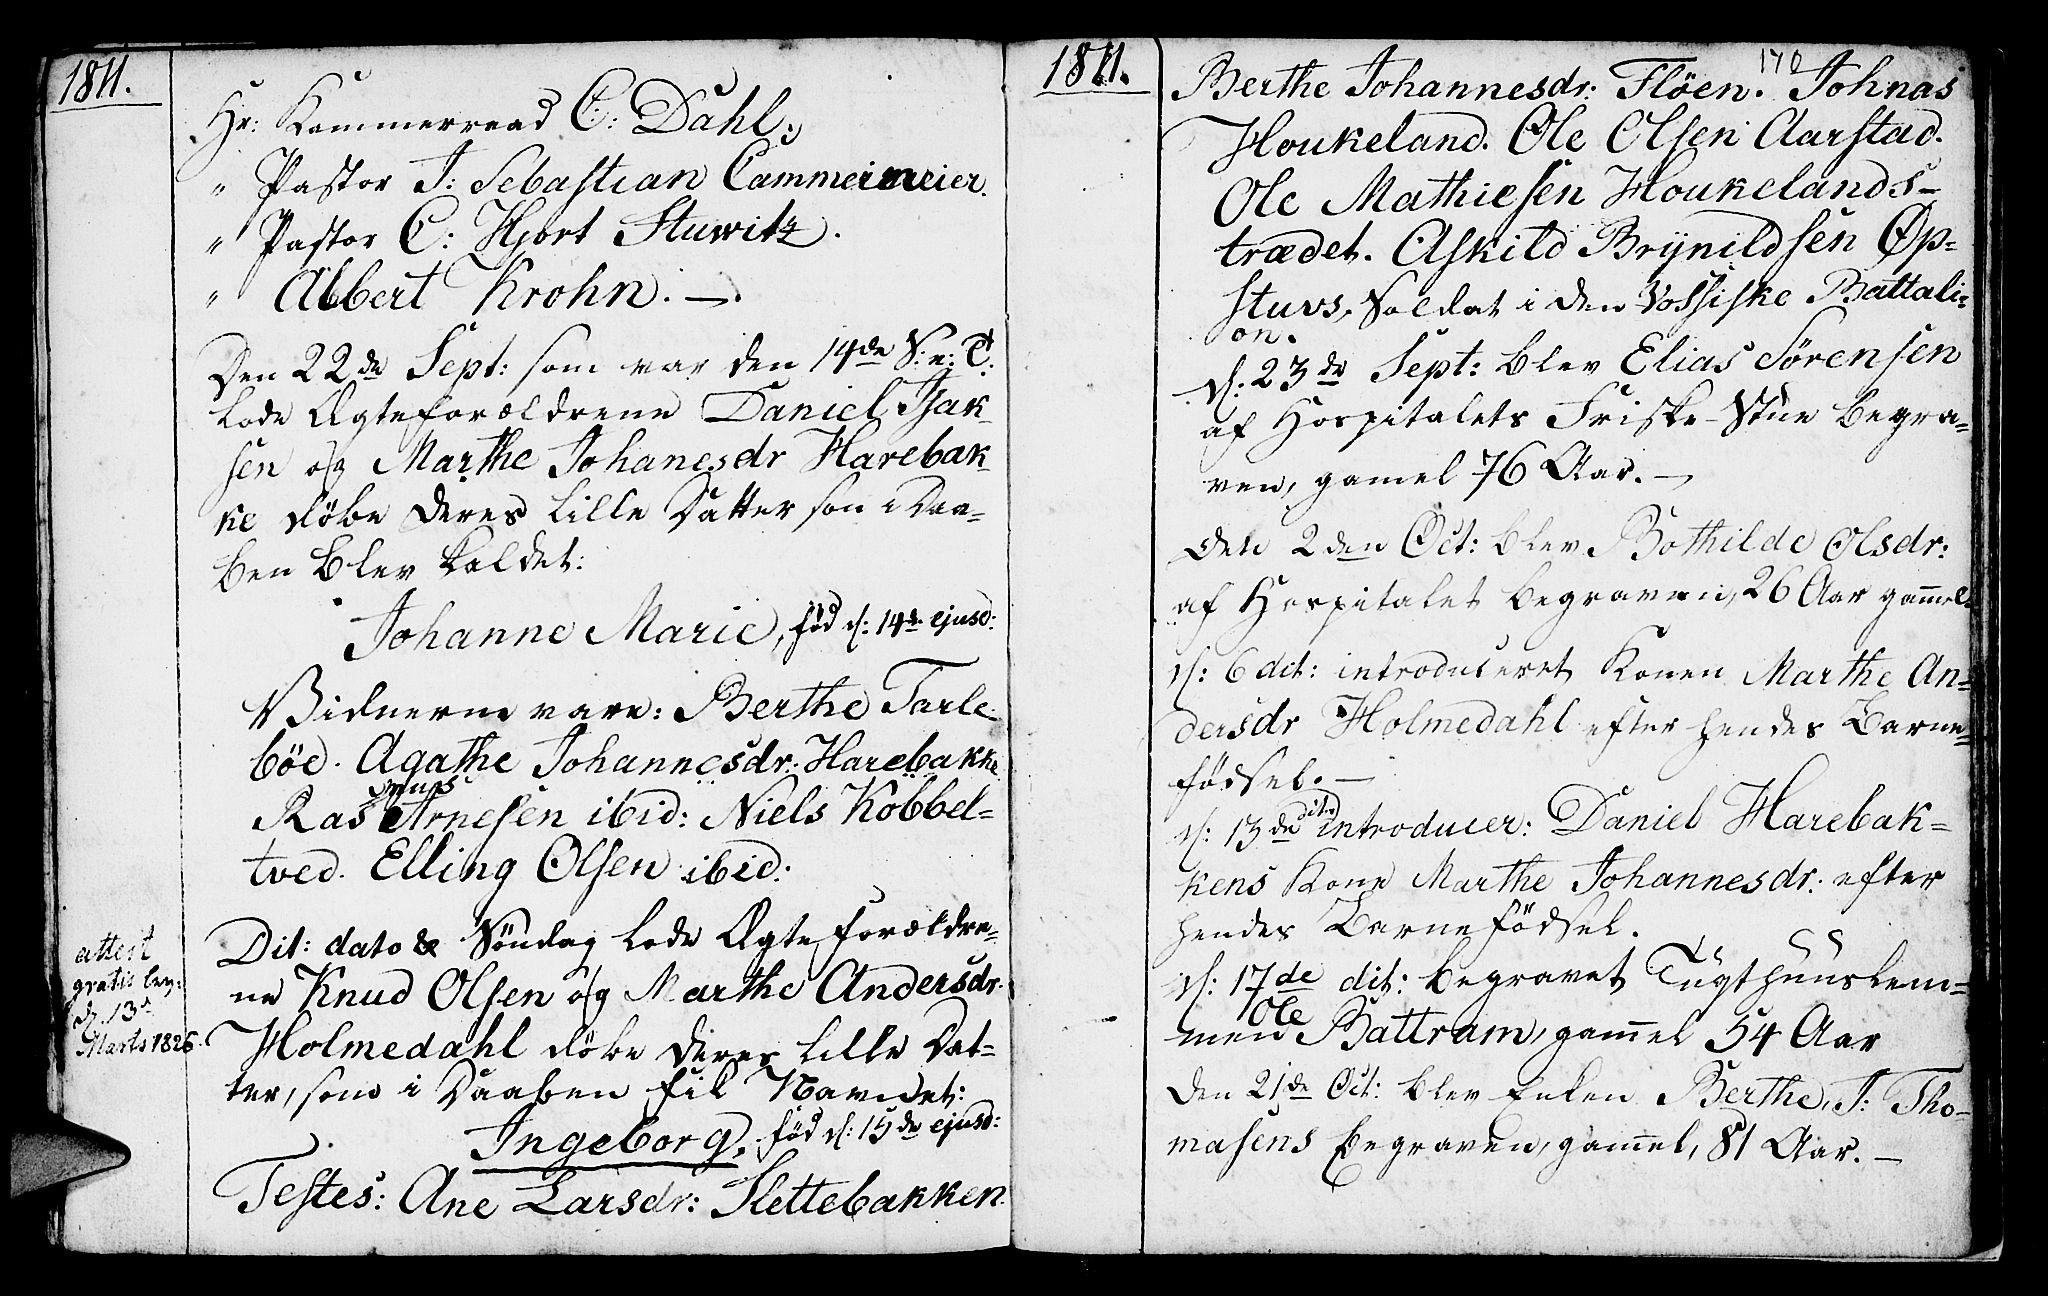 1811.
Hr: Kammerraad C: Dahl.
" Pastor J: Sebastian Cammermeier.
" Pastor C: Hjort Stuwitz.
" Albert Krohn. —.
Den 22de Sept: som var den 14de S: e: T:
lode Ægteforældrene Daniel Isak-
sen og Marthe Johanesdr Harebak-
ke döbe deres lille Datter som i Daa-
ben blev kaldet:
Johanne Marie, föd d: 14de ejusd:
Vidnerne vare: Berthe Tarle-
böe. Agathe Johannesdr: Harebakke
Rasmus Arnesen ibid: Niels Kobbel-
tved. Elling Olsen ibid:
Dit: dato & Söndag lode Ægteforældre-
ne Knud Olsen og Marthe Andersdr.
Holmedahl döbe deres lille Dat-
ter, som i Daaben fik Navnet:
Ingeborg, föd d: 15de ejusd:
Testes: Ane Larsdr: Slettebakken.
attest
gratis lev:
d. 13de
Marts 1826.
1811.
170
Berthe Johannesdr: Flöen. Johnas
Houkeland. Ole Olsen Aarstad.
Ole Mathiesen Houkelands-
trædet. Askild Brynildsen Øp-
stuvs, Soldat i den Vossiske Battali-
on.
d: 23de Sept: blev Elias Sörensen
af Hospitalets Friske-Stue begra-
ven, gamel 76 Aar. —
Den 2den Oct: blev Bothilde Olsdr:
af Hospitalet begraven, 26 Aar gam̄el.
d: 6 dit: introduceret Konen Marthe An-
dersdr Holmedahl efter hendes Barne-
födsel. —
d: 13de dito introducer: Daniel Harebak-
kens Kone Marthe Johannesdr: efter
hendes Barnefödsel.
d: 17de dit: begravet Tugthuuslem-
men Ole Battram, gam̄el 54 Aar
Den 21de Oct: blev Enken Berthe, J: Tho-
masens begraven, gam̄el, 81 Aar. —